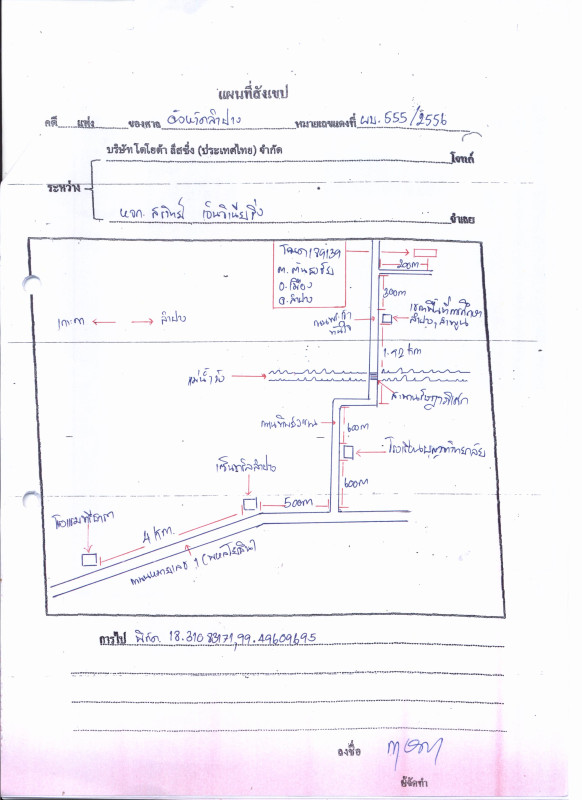 แผนที่สังเขป
คดี แห่ง ของศาล จังหวัดลำปาง หมายเลขแดงที่ ผบ. 555/2556
บริษัท โตโยต้า ลีสซิ่ง (ประเทศไทย) จำกัด โจทก์
ระหว่าง
หจก. จำเลย
โฉนด 139139
ต. ต้นธงชัย
อ. เมือง
จ. ลำปาง
200m
300m
เกาะคา
ลำปาง
เขตพื้นที่การศึกษา
ลำปาง, ลำพูน
1.92 km
แม่น้ำวัง
สะพานรัษฎาภิเศก
600m
โรงเรียนบุญวาทย์วิทยาลัย
600m
เซ็นทรัลลำปาง
500m
4 km
ถนนหมายเลข 1 (พหลโยธิน)
การไป พิกัด 18.31083171,99.49609695
ลงชื่อ
ผู้จัดทำ